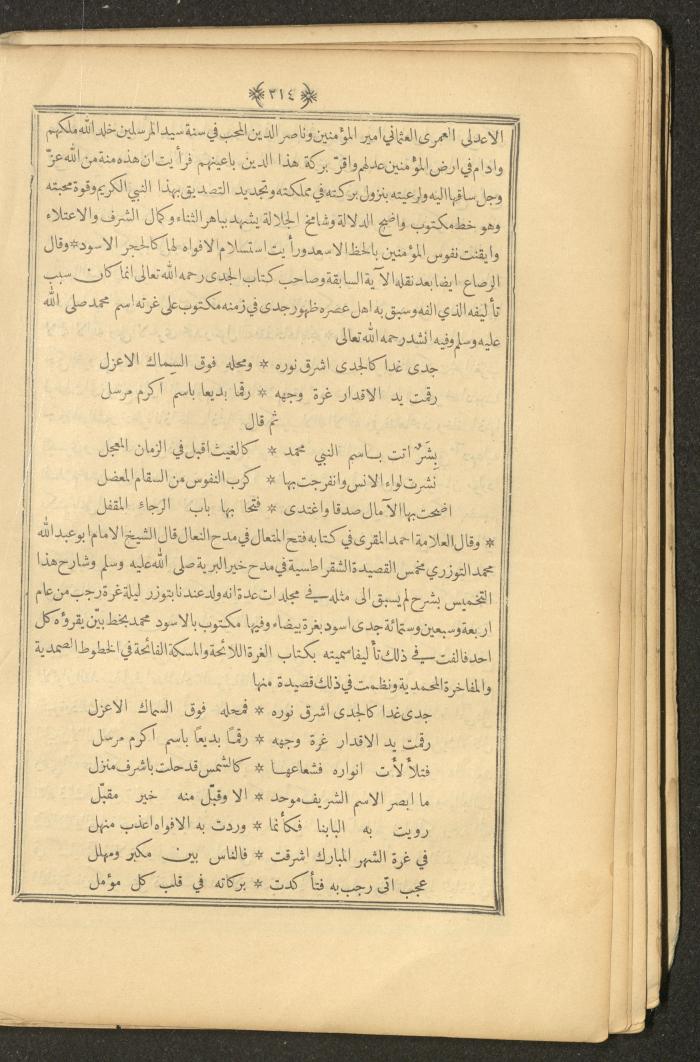 ٣١٤
الاعدلى العمرى العثمانى امير المؤمنين وناصر الدين المحب فى سنة سيد المرسلين خلد الله ملكهم
وادام فى ارض المؤمنين عدلهم واقرّ بركة هذا الدين باعينهم فرأيت ان هذه منة من الله عزّ
وجل ساقها اليه ولرعيته بنزول بركته فى مملكته وتجديد التصديق بهذا النبي الكريم وقوة محبته
وهو خط مكتوب واضح الدلالة وشامخ الجلالة يشهد بباهر الثناء وكمال الشرف والاعتلاء
وايقنت نفوس المؤمنين بالحظ الاسعد ورأيت استسلام الافواه لها كالحجر الاسود * وقال
الرصاع ايضا بعد نقله الآية السابقة وصاحب كتاب الجدى رحمه الله تعالى انما كان سبب
تأليفه الذي الفه وسبق به اهل عصره ظهور جدى فى زمنه مكتوب على غرته اسم محمد صلى الله
عليه وسلم وفيه انشد رحمه الله تعالى
جدى غدا كالجدى اشرق نوره * ومحله فوق السماك الاعزل
رقمت يد الاقدار غرة وجهه * رقما بديعا باسم اكرم مرسل
ثم قال
بشرٌ اتت باسم النبي محمد * كالغيث اقبل في الزمان المعجل
نشرت لواء الانس وانفرجت بها * كرب النفوس من السقام المعضل
اضحت بها الآمال صدقا واغتدى * فتحا بها باب الرجاء المقفل
* وقال العلامة احمد المقرى فى كتابه فتح المتعال فى مدح النعال قال الشيخ الامام ابو عبد الله
محمد التوزري مخمس القصيدة الشقراطسية في مدح خير البرية صلى الله عليه وسلم وشارح هذا
التخميس بشرح لم يسبق الى مثله في مجلدات عدة انه ولد عندنا بتوزر ليلة غرة رجب من عام
اربعة وسبعين وستمائة جدى اسود بغرة بيضاء وفيها مكتوب بالاسود محمد بخط بيّن يقرؤه كل
احد فالفت في ذلك تأليفا سميته بكتاب الغرة اللائحة والمسكة الفائحة في الخطوط الصمدية
والمفاخرة المحمدية ونظمت في ذلك قصيدة منها
جدى غدا كالجدى اشرق نوره * فمحله فوق السماك الاعزل
رقمت يد الاقدار غرة وجهه * رقمًا بديعًا باسم اكرم مرسل
فتلألأت انواره فشعاعها * كالشمس قد حلت باشرف منزل
ما ابصر الاسم الشريف موحد * الا وقبّل منه خير مقبّل
رويت به البابنا فكأنما * وردت به الافواه اعذب منهل
في غرة الشهر المبارك اشرقت * فالناس بين مكبر ومهلل
عجب اتى رجب به فتأكدت * بركاته في قلب كل مؤمل